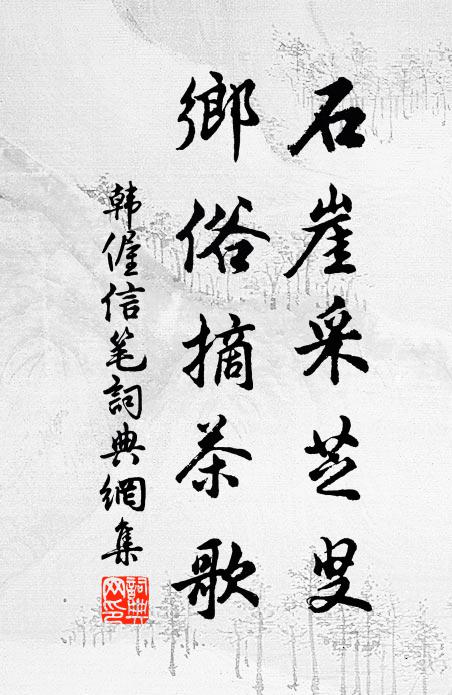 石崖采芝叟
鄉俗摘茶歌
韩偓信笔詞典網集
詞典網印